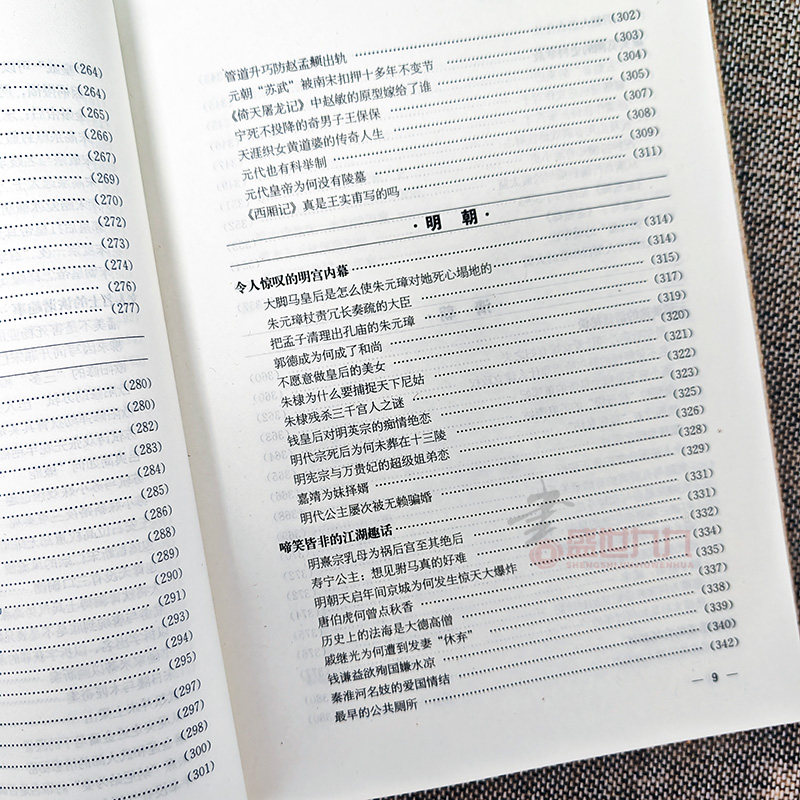 (264)
(264)
(265)
(266)
(267)
(269)
(270)
(272)
(273)
(274)
(276)
(277)
(280)
(280)
(282)
(283)
(284)
(285)
(286)
(288)
(289)
(290)
(291)
(293)
(294)
(295)
(297)
(297)
(298)
(300)
(301)
管道升巧防赵孟頫出轨 (302)
元朝“苏武”被南宋扣押十多年不变节 (303)
《倚天屠龙记》中赵敏的原型嫁给了谁 (304)
宁死不投降的奇男子王保保 (305)
天涯织女黄道婆的传奇人生 (307)
元代也有科举制 (308)
元代皇帝为何没有陵墓 (309)
《西厢记》真是王实甫写的吗 (311)
· 明 朝 ·
令人惊叹的明宫内幕 (314)
大脚马皇后是怎么使朱元璋对她死心塌地的 (314)
朱元璋杖责冗长奏疏的大臣 (315)
把孟子清理出孔庙的朱元璋 (317)
郭德成为何成了和尚 (319)
不愿意做皇后的美女 (320)
朱棣为什么要捕捉天下尼姑 (321)
朱棣残杀三千宫人之谜 (322)
钱皇后对明英宗的痴情绝恋 (323)
明代宗死后为何未葬在十三陵 (325)
明宪宗与万贵妃的超级姐弟恋 (326)
嘉靖为妹择婿 (328)
明代公主屡次被无赖骗婚 (329)
啼笑皆非的江湖趣话 (331)
明熹宗乳母为祸后宫至其绝后 (331)
寿宁公主：想见驸马真的好难 (332)
明朝天启年间京城为何发生惊天大爆炸 (334)
唐伯虎何曾点秋香 (335)
历史上的法海是大德高僧 (337)
戚继光为何遭到发妻“休弃” (338)
钱谦益欲殉国嫌水凉 (339)
秦淮河名妓的爱国情结 (340)
最早的公共厕所 (342)
— 9 —
盛世九九